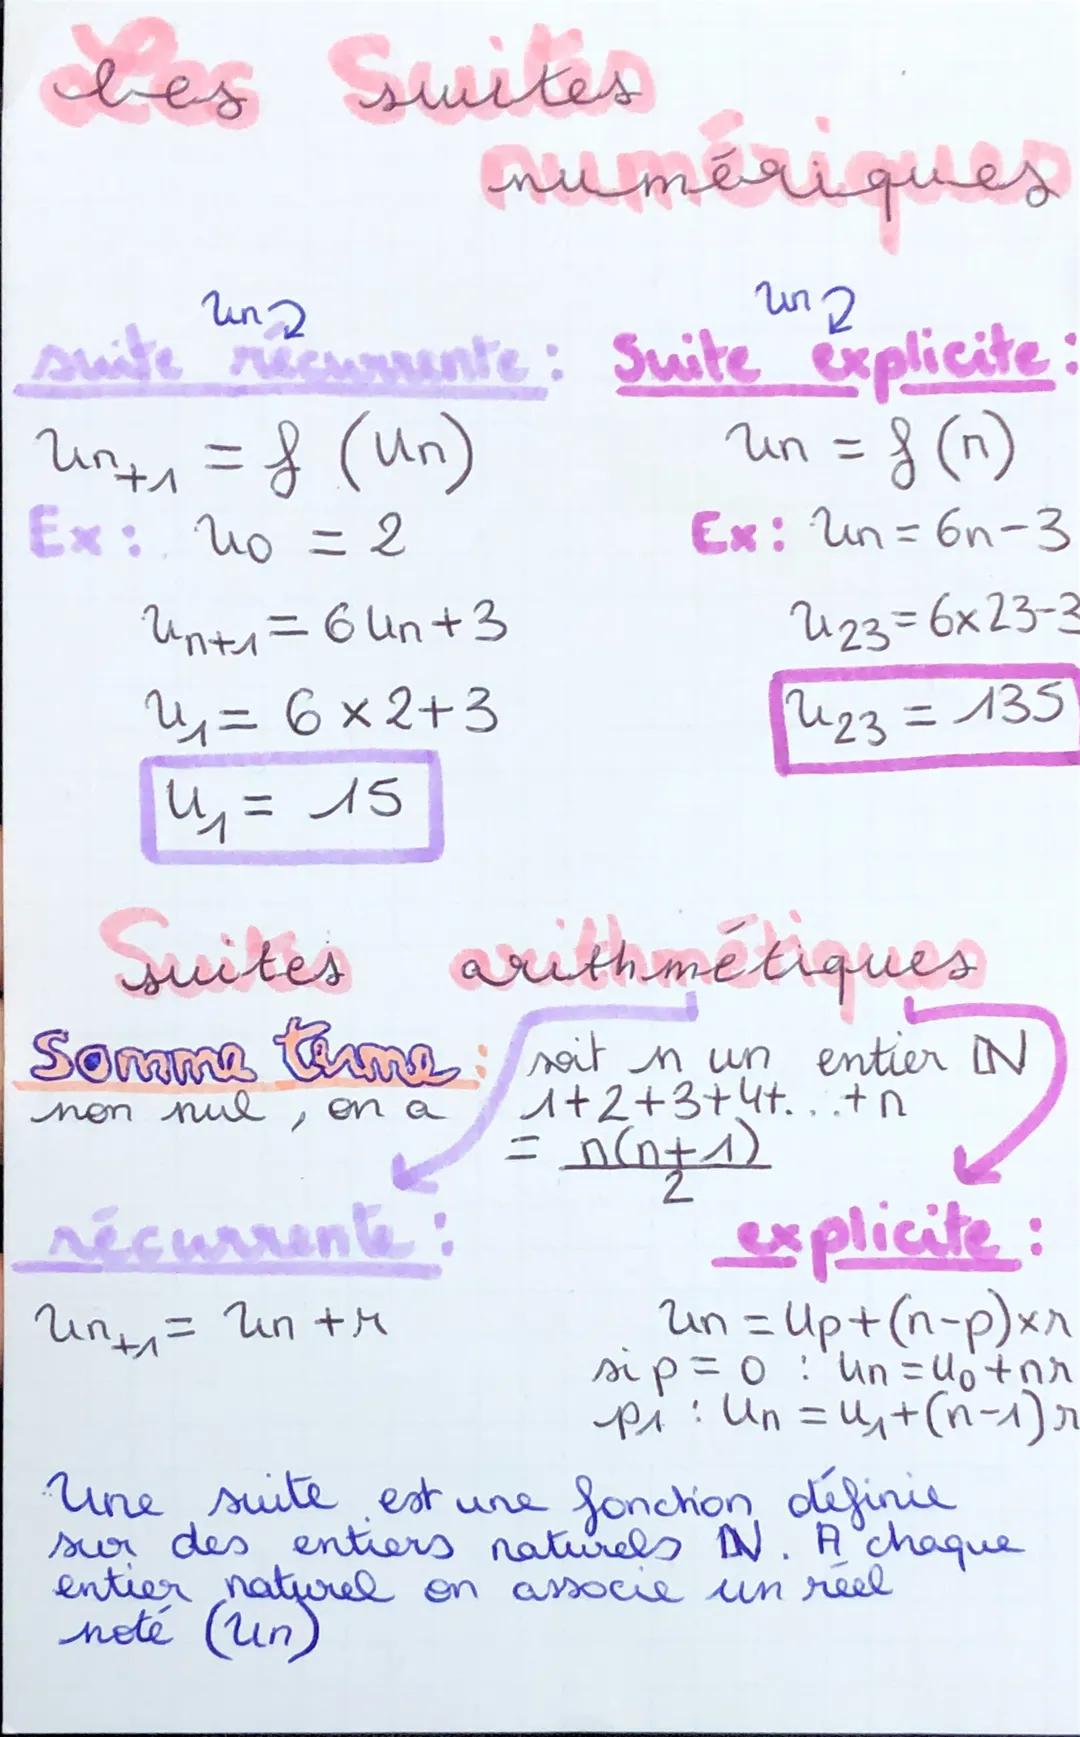 Les Suites
numériques
Un
suite récurrente :
Un+1 = f (Un)
Ex : U0 = 2
Un+1 = 6Un+3
U1 = 6 x 2+3
U1 = 15
Un
Suite explicite :
Un = f (n)
Ex : Un = 6n-3
U23 = 6x23-3
U23 = 135
Suites arithmétiques
Somme terme : soit n un entier ℕ
non nul, on a 1+2+3+4+...+n
= n(n+1)
2
récurrente :
Un+1 = Un +r
explicite :
Un = Up+(n-p)xr
si p = 0 : Un = U0+nr
p1 : Un = U1+(n-1)r
Une suite est une fonction définie
sur des entiers naturels ℕ. A chaque
entier naturel on associe un réel
noté (Un)